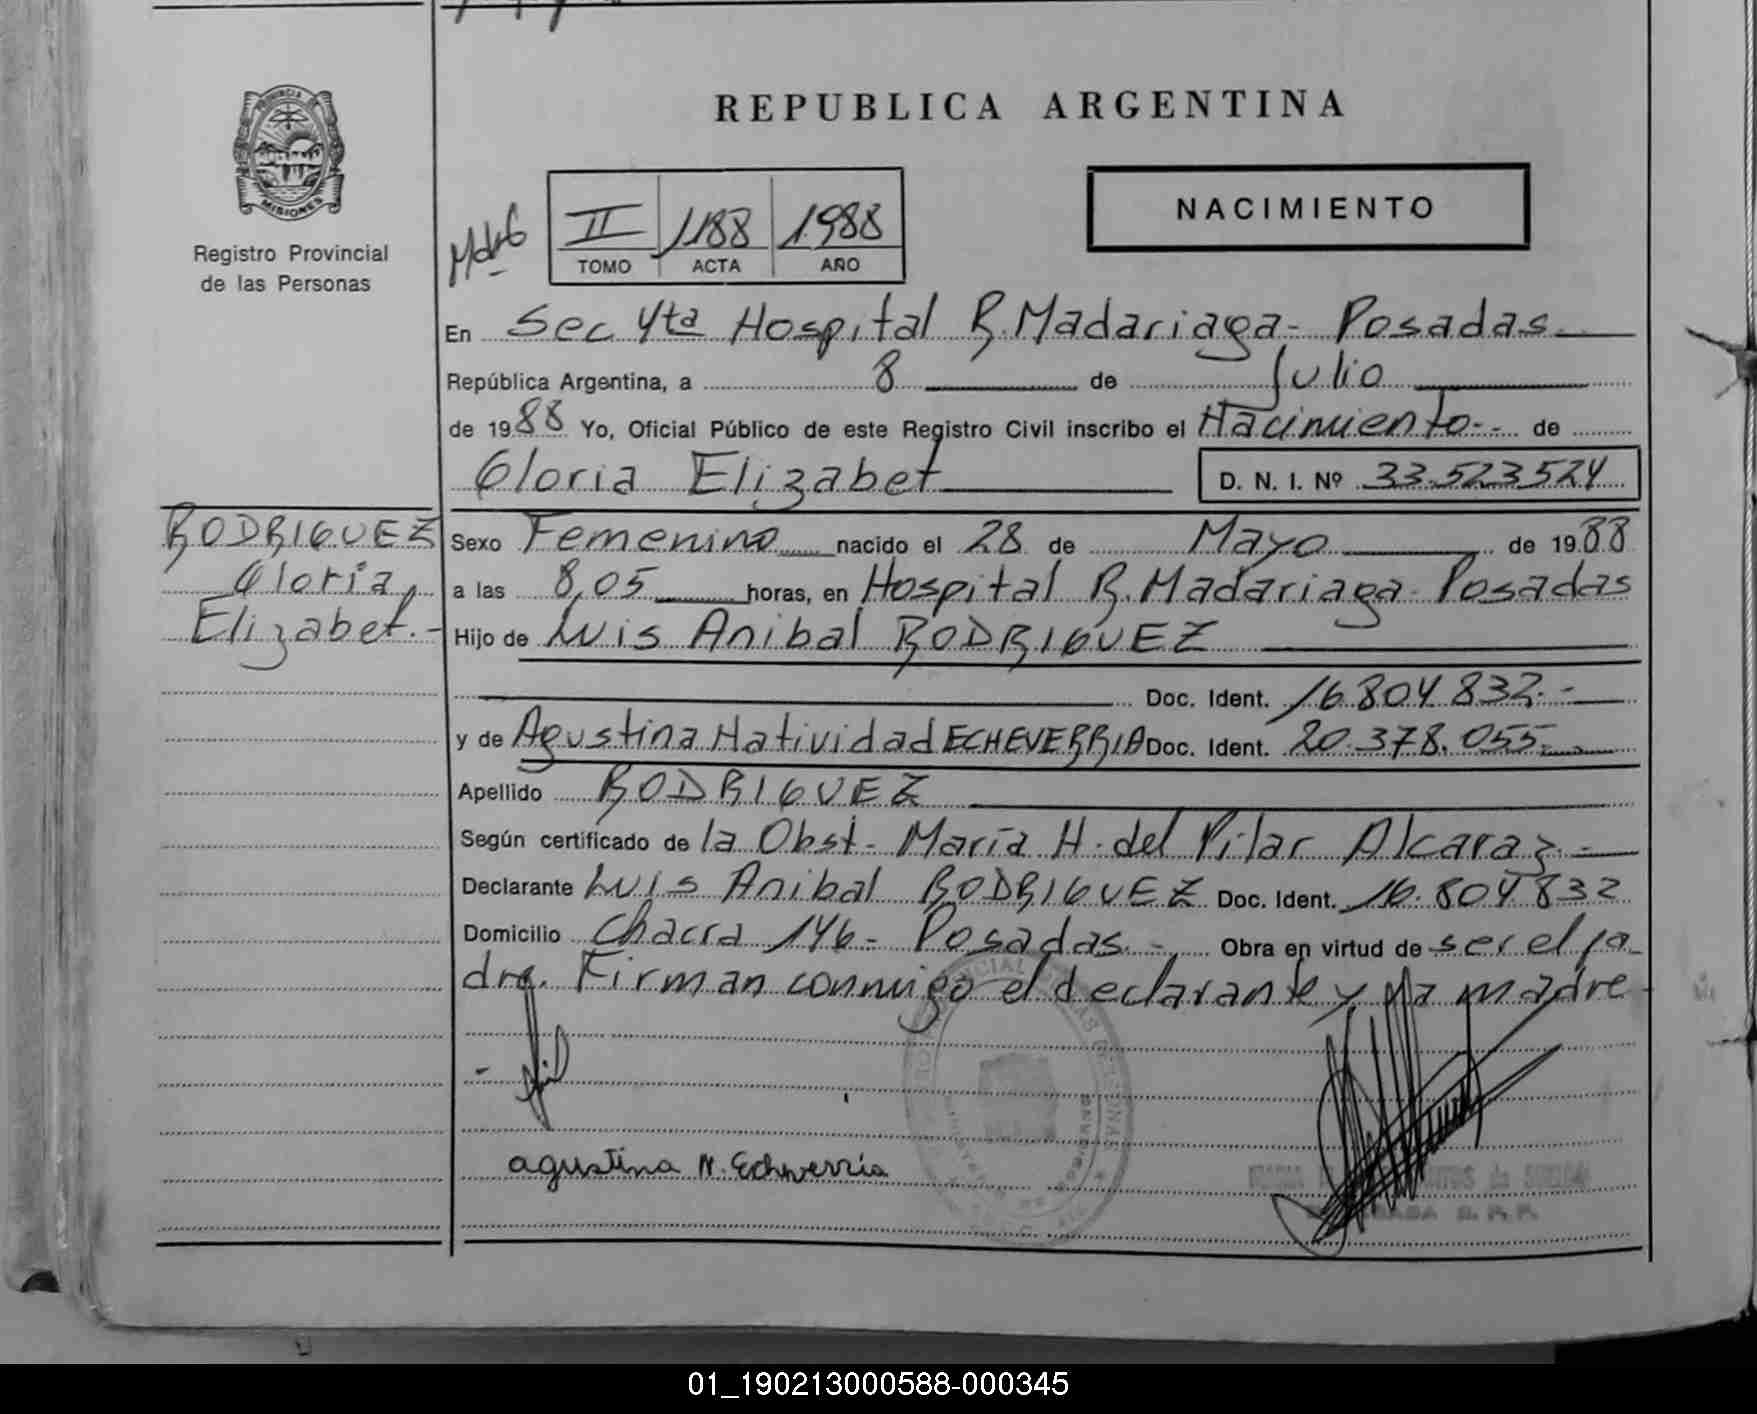 REPUBLICA ARGENTINA
NACIMIENTO
PROVINCIA DE
MISIONES
Registro Provincial
de las Personas
II 1188 1988
TOMO ACTA AÑO
En Sec 4ta Hospital R. Madariaga - Posadas
República Argentina, a 8 de Julio
de 1988 Yo, Oficial Público de este Registro Civil inscribo el Nacimiento-- de
Gloria Elizabet D. N. I. Nº 33.523524
RODRIGUEZ
Gloria
Elizabet.-
Sexo Femenino nacido el 28 de Mayo de 1988
a las 8,05 horas, en Hospital R. Madariaga - Posadas
Hijo de Luis Anibal RODRIGUEZ
Doc. Ident. 16.804.832.-
y de Agustina Natividad ECHEVERRIA Doc. Ident. 20.378.055.-
Apellido RODRIGUEZ
Según certificado de la Obst. María H. del Pilar Alcaraz.-
Declarante Luis Anibal RODRIGUEZ Doc. Ident. 16.804832
Domicilio Chacra 146 - Posadas.- Obra en virtud de ser el pa
dre. Firman conmigo el declarante y la madre-
agustina N. Echeverria
01_190213000588-000345